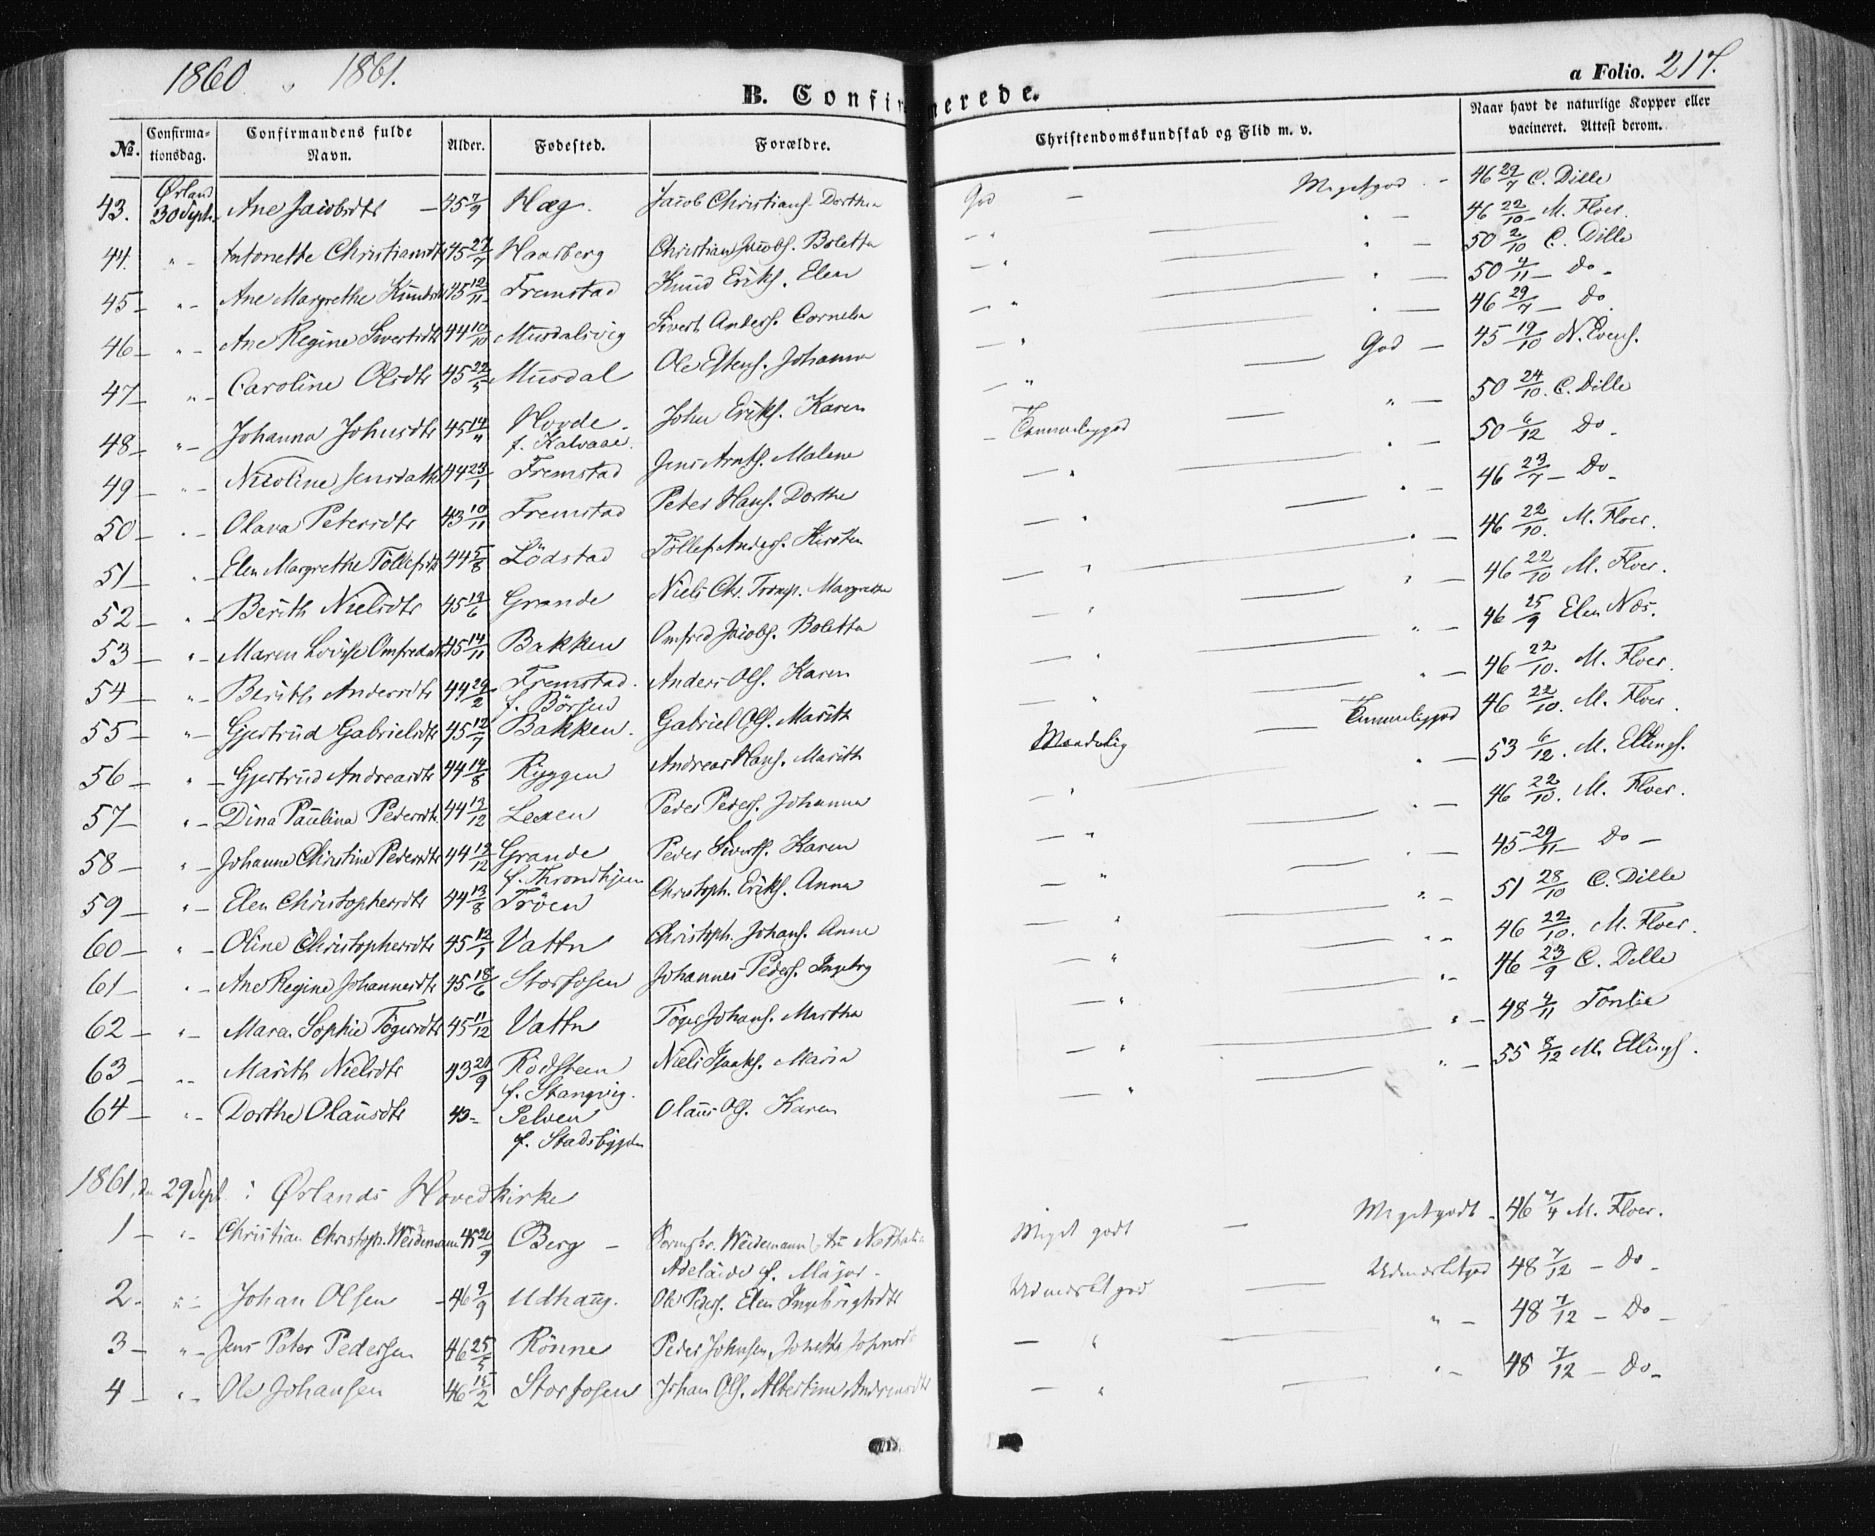 1860 & 1861.
B. Confirmerede.
a Folio. 217.
No. Confirmationsdag. Confirmandens fulde Navn. Alder. Fødested. Forældre. Christendomskundskab og Flid m. v. Naar havt de naturlige Kopper eller vacineret. Attest derom.
43. Ørland 30 Septr. Ane Jacobsdtr – 45 7/9 Hæg. Jacob Christians. Dorthea God — Megetgod – 46 29/7 C. Dille
44. " – Antonette Christiansdtr 45 27/7 Haasberg Christian Jacobs. Boletta – " " – 46 22/10 – M. Floer.
45 – " – Ane Margrethe Knudsdtr 45 12/11 Fremstad Knud Eriks. Elen – " " – 50 2/10 C. Dille
46 – " – Ane Regine Sivertsdtr 44 10/10 Musdalsvig Sivert Anders. Cornelia – " " – 50 4/11 – Do –
47 – " – Caroline Olsdtr 45 22/5 Musdal Ole Estens. Johanna – " " – 46 29/7 – Do.
48 – " – Johanna Johnsdtr 45 14/11 Hovde – f. Kalvaae. John Eriks. Karen – " God – 45 19/10 N. Evens.
49 – " – Nicoline Jensdatter 44 23/1 Fremstad Jens Arnts. Malene – Temmeliggod " – 50 24/10. C. Dille
50 – " – Olava Petersdtr 43 10/11 Fremstad Peter Hans. Dorthe – " " – 50 6/12 Do –
51 – " – Elen Margrethe Tøllefsdtr 44 5/8 Lödstad Töllef Anders. Kirsten – " " – 46 23/7 – Do –
52 – " – Berith Nielsdtr 45 12/6 Grande Niels Chr. Tromp. Margrethe – " " – 46 22/10. M. Floer.
53 – " – Maren Lovise Omfredsdtr 45 14/11 Bakken Omfred Jacobs. Boletta – " " – 46 22/10 M. Floer.
54 – " – Berith Andersdtr 44 29/2 Fremstad. f. Börsen Anders Ols. Karen – " " – 46 25/9 Elen Næs.
55 – " – Gjertrud Gabrielsdtr 45 12/7 Bakken. Gabriel Ols. Marith – " " – 46 22/10. M. Floer.
56 – " – Gjertrud Andreasdtr 44 14/8 Ryggen Andreas Hans. Marith Maadelig Temmeliggod 46 22/10. M. Floer.
57 – " – Dina Paulina Pedersdtr. 44 12/12 Lexen Peder Peders. Johanna – " " – 53 6/12. M. Ellings.
58 – " – Johanne Christine Pedersdtr 44 12/12 Grande f. Throndhjem Peder Siverts. Karen – " " – 46 22/10. M. Floer.
59 – " – Elen Christophersdtr 44 13/8 Tröen Christoph. Eriks. Anna – " " – 45 29/11 – Do –
60 – " – Oline Christophersdtr 45 12/1 Vattn Christoph. Johans. Anne – " " – 51 28/10 C. Dille
61 – " – Ane Regine Johannesdtr 45 18/6 Storfosen Johannes Peders. Ingebrg – " " – 46 22/10. M. Floer.
62 – " – Maren Sophie Tögersdtr 45 11/12 Vattn Töger Johans. Martha – " " – 46 23/9 C. Dille
63 – " – Marith Nielsdtr 43 21/9 Rödsteen f. Stangvig. Niels Isaaks. Maria – " " – 48 4/11 Tonlie
64 – " – Dorthe Olausdtr 43 – Selven f. Stadsbygden Olaus Ols. Karen – " " – 55 8/12 M. Ellings.
1861, den 29 Sept. i Ørlands Hovedkirke
1 – " – Christian Christoph. Weidemann 45 20/9 Berg – Weidemann Nathalia Adelaide f. Major – Meget godt – Megetgodt – 46 7/4 M. Floer.
2. " – Johan Olsen – 46 9/9 Udhaug. Ole Peders. Elen Ingebrigtsdtr Udmærket god Udmærketgod 48 7/12 – Do –
3 – " – Jens Peter Pedersen 46 25/5 Rönne Peder Johnsen, Jonetta Johnsdtr – " " – 48 7/12 – Do –
4 – " – Ole Johansen 46 15/2 Storfosen Johan Ols. Albertine Andreasdtr – " " – 48 7/12 – Do –